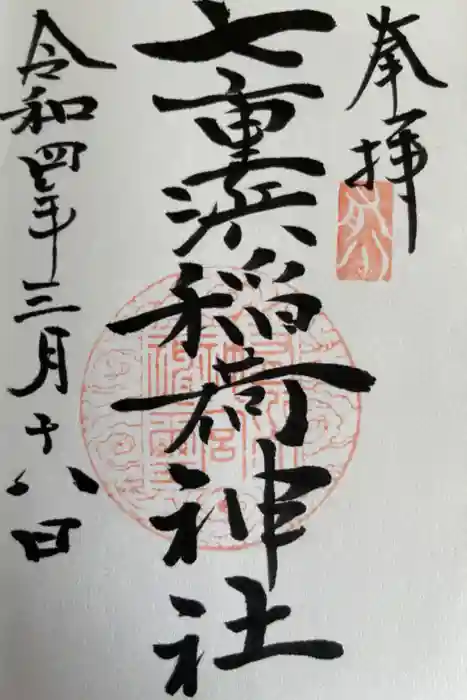 奉拝
七重浜稲荷神社
令和四年三月十八日